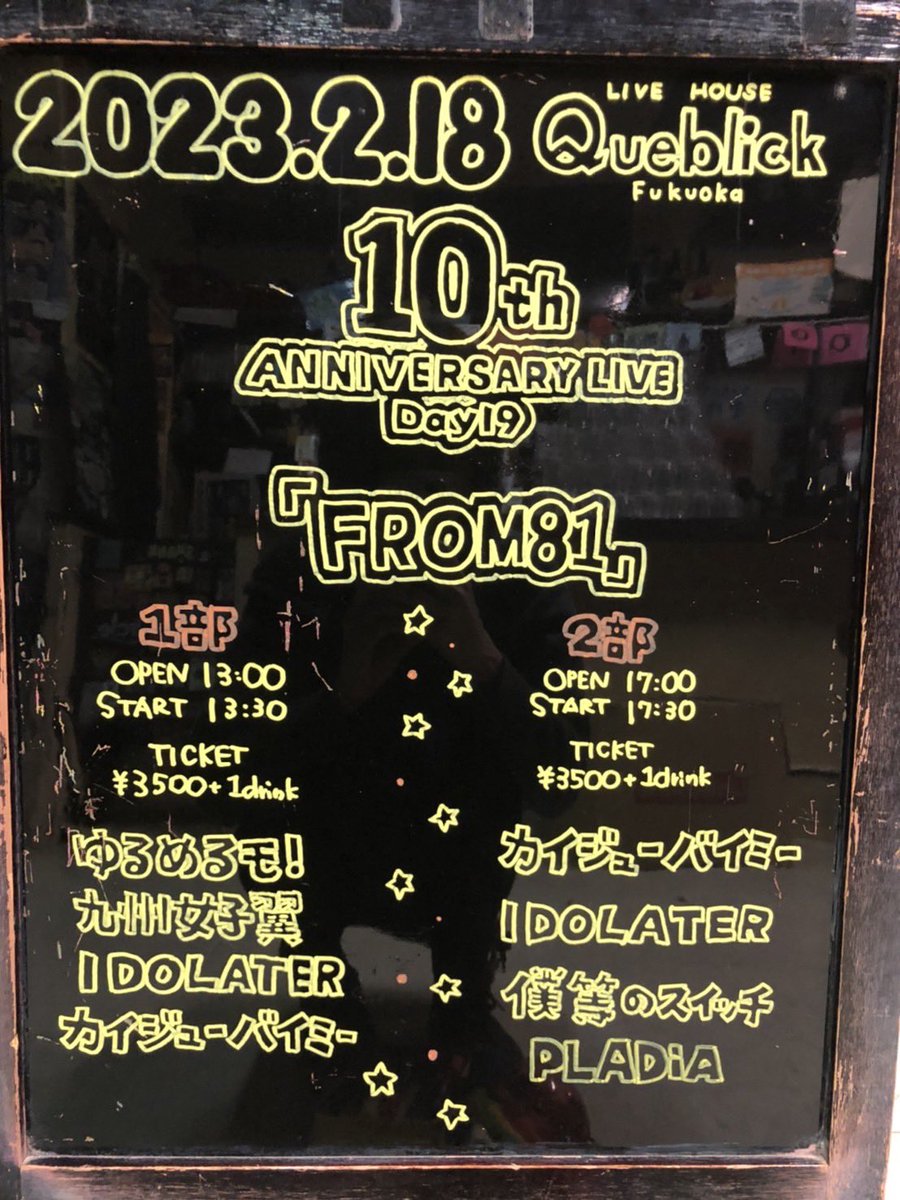 2023.2.18
LIVE HOUSE
Queblick
Fukuoka
10th
ANNIVERSARY LIVE
Day19
『FROM81』
1部
OPEN 13:00
START 13:30
TICKET
¥3500+1drink
ゆるめるモ!
九州女子翼
IDOLATER
カイジューバイミー
2部
OPEN 17:00
START 17:30
TICKET
¥3500+1drink
カイジューバイミー
IDOLATER
僕等のスイッチ
PLADiA